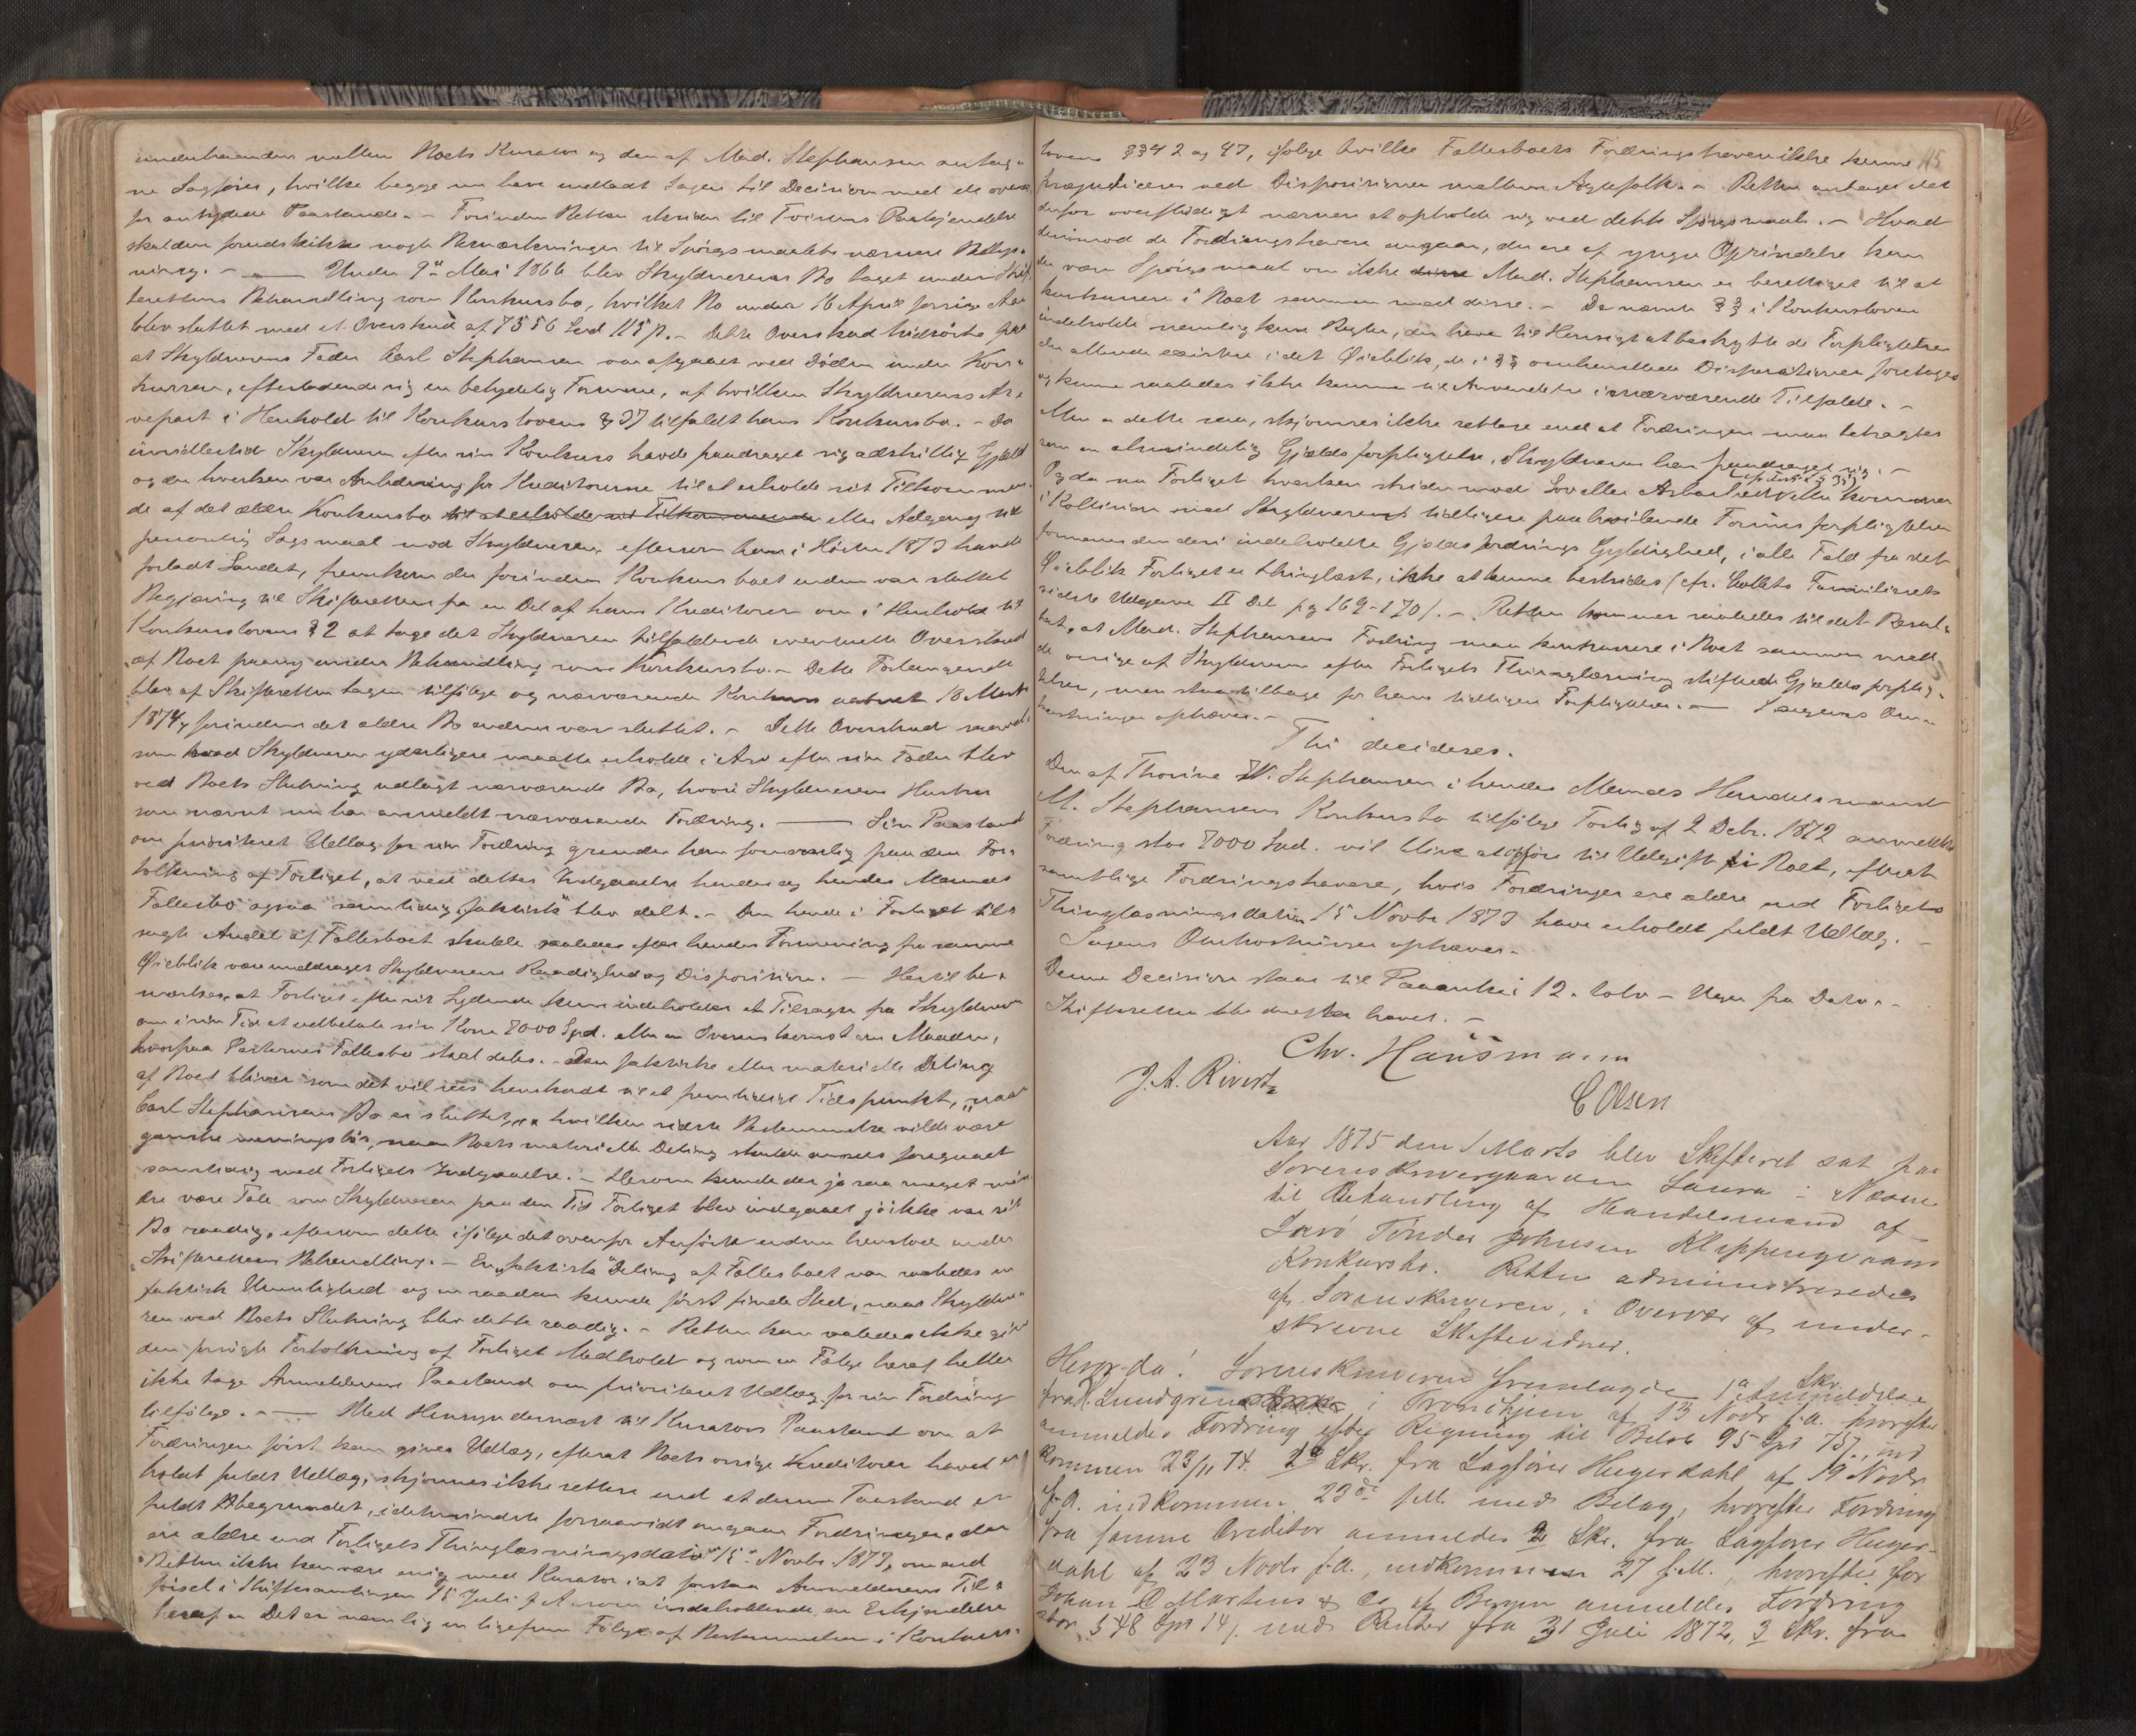 mellem Boets Kurator og den af Mad. Stephansen antag-
ne Sagfører, hvilke begge nu have indladt Sagen til Decision med de oven-
for antydede Paastande. - Forinden Retten skrider til Tvistens Paakjendelse
skal den forudskikke nogle Bemærkninger til Spørgsmaalets nærmere Belys-
ning. - Under 9de Mai 1866 blev Skyldnerens Bo taget under Skif-
terettens Behandling som Konkursbo, hvilket Bo under 16 April forrige Aar
blev sluttet med et Overskud af 7556 Spd 113 ſ. - Dette Overskud hidrørte fra
at Skyldnerens Fader Carl Stephansen var afgaaet ved Døden under Kon-
kursen, efterladende sig en betydelig Formue, af hvilken Skyldnerens Ar-
vepart i Henhold til Konkurslovens § 37 tilfaldt hans Konkursbo. - Da
imidlertid Skyldneren efter sin Konkurs havde paadraget sig adskillig Gjæld
og der hverken var Anledning for Kreditorerne til at erholde sit Tilkommen-
de af det ældre Konkursbo til at erholde sit Tilkommende eller Adgang til
personlig Søgsmaal mod Skyldneren, eftersom han i Høsten 1873 havde
forladt Landet, fremkom der forinden Konkursboet endnu var sluttet
Begjæring til Skifteretten fra en Del af hans Kreditorer om i Henhold til
Konkurslovens § 2 at tage det Skyldneren tilfaldende eventuelle Overskud
af Boet paany under Behandling som Konkursbo. - Dette Forlangende
blev af Skifteretten tagen tilfølge og nærværende Konkurs aabnet 18 Marts
1874, forinden det ældre Bo endnu var sluttet. - Dette Overskud saavel
som hvad Skyldneren yderligere maatte erholde i Arv efter sin Fader blev
ved Boets Slutning udlagt nærværende Bo, hvori Skyldnerens Hustru
som nævnt nu har anmeldt nærværende Fordring. - Sin Paastand
om prioriteret Udlæg for sin Fordring grunder hun fornemlig paa den For-
tolkning af Forliget, at ved dettes Indgaaelse hendes og hendes Mands
Fællesbo ogsaa samtidig "faktisk" blev delt. - Den hende i Forliget til-
sagte Andel af Fællesboet skulde saaledes efter hendes Formening fra samme
Øieblik være unddraget Skyldnerens Raadighed og Disposition. - Hertil be-
mærkes, at Forliget efter sit Lydende kun indeholder et Tilsagn fra Skyldneren
om i sin Tid at udbetale sin Kone 7000 Spd. eller en Overenskomst om Maaden,
hvorpaa Parternes Fællesbo skal deles. - Den faktiske eller materielle Deling
af Boet bliver som det vil sees henskudt til et fremtidigt Tidspunkt, "naar
Carl Stephansens Bo er sluttet," hvilken sidste Bestemmelse vilde være
ganske meningsløs, naar Boets materielle Deling skulde ansees foregaaet
samtidig med Forligets Indgaaelse. - Herom kunde der jo saa meget min-
dre være Tale som Skyldneren paa den Tid Forliget blev indgaaet jo ikke var sit
Bo raadig, eftersom dette ifølge det ovenfor Anførte endnu henstod under
Skifterettens Behandling. - En "faktisk" Deling af Fællesboet var saaledes en
faktisk Umulighed og en saadan kunde først finde Sted, naar Skyldne-
ren ved Boets Slutning blev dette raadig. - Retten kan saaledes ikke give
den forsøgte Fortolkning af Forliget Medhold og som en Følge heraf heller
ikke tage Anmelderens Paastand om prioriteret Udlæg for sin Fordring
tilfølge. - Med Hensyn dernæst til Kurators Paastand om at
Fordringen først kan gives Udlæg, efterat Boets øvrige Kreditorer have er-
holdt fuldt Udlæg, skjønnes ikke rettere end at denne Paastand er
fuldt begrundet, idetmindste forsaavidt angaar Fordringer, der
ere ældre end Forligets Thinglæsningsdatum 15de Novbr 1873, om end
Retten ikke kan være enig med Kurator i at forstaa Anmelderens Til-
førsel i Skiftesamlingen 15 Juli f A som indeholdende en Erkjendelse
heraf. Det er nemlig en ligefrem Følge af Bestemmelsen i Konkurs-
115
lovens §§ 42 og 47, ifølge hvilke Fællesboets Fordringshavere ikke kunne
præjudiceres ved Dispositioner mellem Ægtefolk. - Retten antager det
derfor overflødigt nærmere at opholde sig ved dette Spørgsmaal. - Hvad
derimod de Fordringshavere angaar, der ere af yngre Oprindelse kan
der være Spørgsmaal om ikke disse Mad. Stephansen er berettiget til at
konkurrere i Boet sammen med disse. - De nævnte §§ i Konkursloven
indeholde nemlig kun Regler, der have til Hensigt at beskytte de Forpligtelser
der allerede existere i det Øieblik, de i §§ omhandlede Dispositioner foretages
og kunne saaledes ikke komme til Anvendelse i nærværende Tilfælde. -
Men er dette saa, skjønnes ikke rettere end at Fordringen maa betragtes
som en almindelig Gjældsforpligtelse, Skyldneren har paadraget sig. -
Og da nu Forliget hverken strider mod Lov eller Ærbarhed eller kommer
i Kollision med Skyldnerens tidligere paahvilende Formuesforpligtelser
formenes den deri indeholdte Gjældsfordrings Gyldighed, i alle Fald fra det
Øieblik Forliget er thinglæst, ikke at kunne bestrides (cfr. Colletts Familieret
sidste Udgave II Del pg 169-170). - Retten kommer saaledes til det Resul-
tat, at Mad. Stephansens Fordring maa konkurrere i Boet sammen med
de øvrige af Skyldneren efter Forligets Thinglæsning stiftede Gjældsforplig-
telser, men staa tilbage for hans tidligere Forpligtelser. - Sagens Om-
kostninger ophæves. -
Thi decideres.
Den af Thorine W. Stephansen i hendes Mands Handelsmand
M. Stephansens Konkursbo tilfølge Forlig af 2 Debr. 1872 anmeldte
Fordring stor 7000 Spd. vil blive at opføre til Udgift i Boet, efterat
samtlige Fordringshavere, hvis Fordringer ere ældre end Forligets
Thinglæsningsdatum 15 Novbr 1873 have erholdt fuldt Udlæg. -
Sagens Omkostninger ophæves. -
Denne Decision staar til Paaanke i 12. tolv - Uger fra Dato. -
Skifteretten blev derefter hævet. -
Chr. Hansmann
J. A. Rivertz
C Olsen
Aar 1875 den 1 Marts blev Skifteret sat paa
Sorenskrivergaarden Laura i Næsne
til Behandling af Handelsmand af
Lurø Tønder Johnsen Kleppingvaags
Konkursbo. Retten administreredes
af Sorenskriveren, i Overvær af under-
skrevne Skiftevidner.
Hvor da! Sorenskriveren fremlagde 1a Skr. Anmeldelse
fra Lundgrens Enke i Trondhjem af 13 Novbr f.A. hvorefter
anmeldes Fordring efter Regning til Beløb 95 Spd 75ſ., ind
kommen 23/11 74. 1b Skr. fra Sagfører Hegerdahl af 19 Novbr
f. A. indkommen 23de f.M. med Bilag, hvorefter Fordring
fra samme Creditor anmeldes 2 Skr. fra Sagfører Heger-
dahl af 23 Novbr f.A., indkommen 27 f.M., hvorefter for
Johan C Martens & Co af Bergen anmeldes Fordring
stor 548 Spd 14 ſ. med Renter fra 31 Juli 1872, 3 Skr. fra